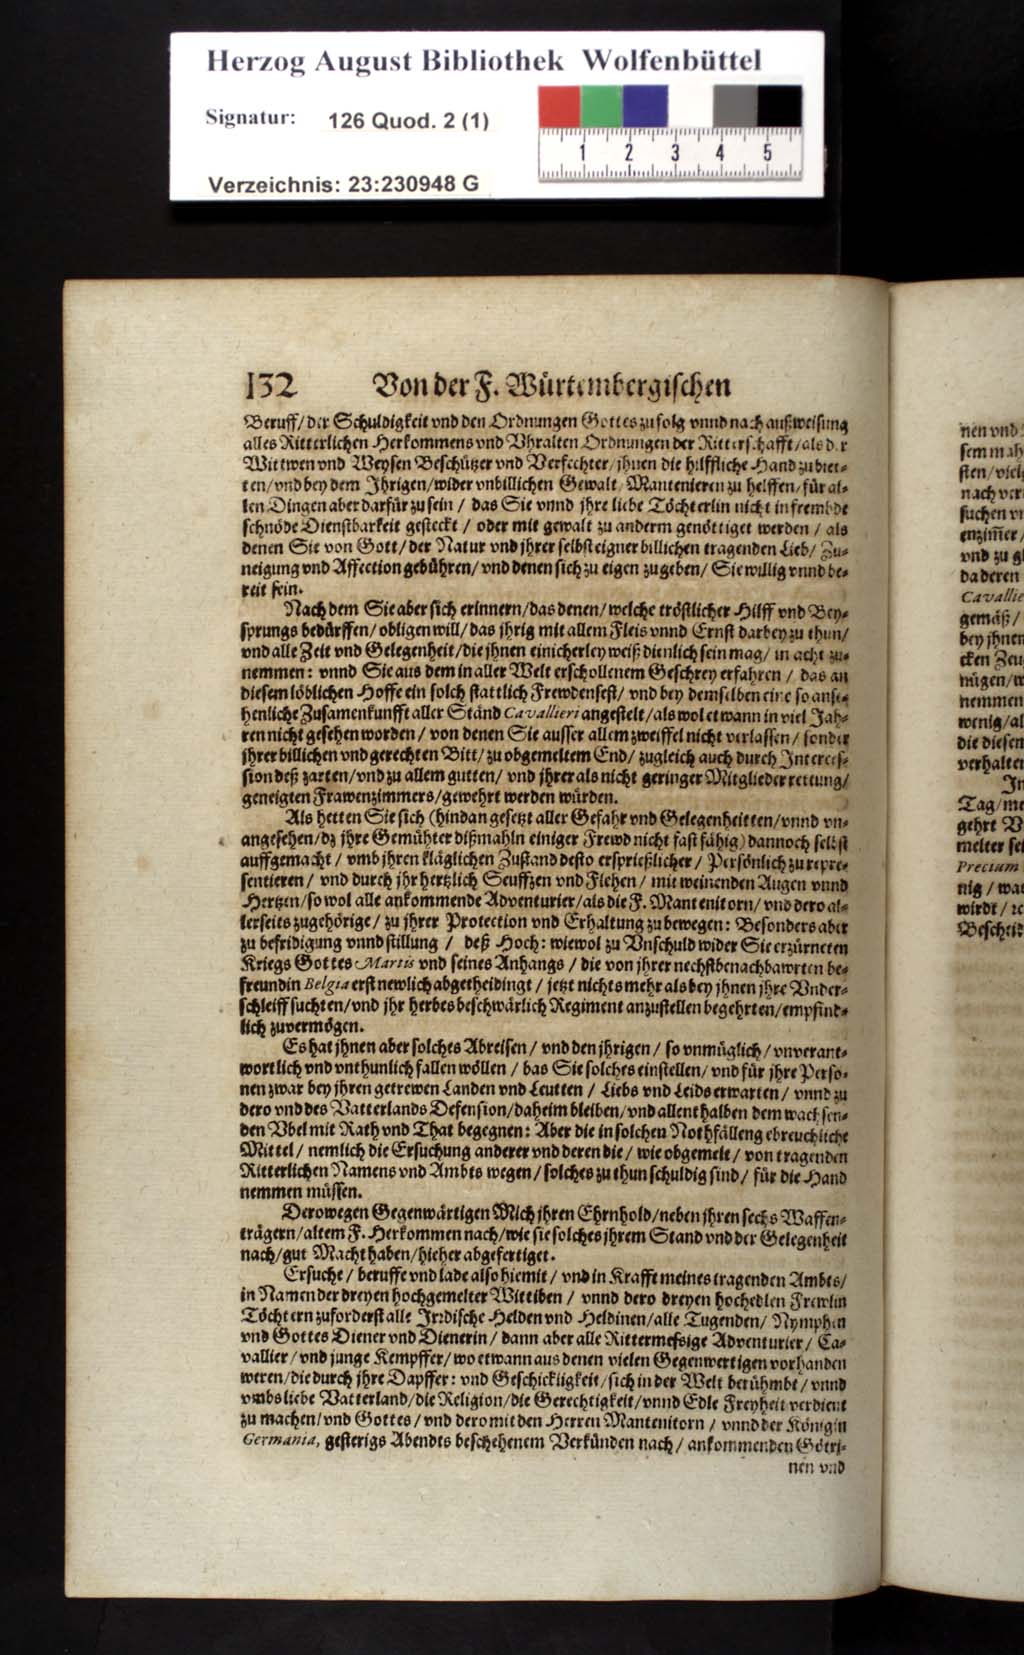 Herzog August Bibliothek Wolfenbüttel
Signatur: 126 Quod. 2 (1)
1 2 3 4 5
Verzeichnis: 23:230948 G
132 Von der F. Würtembergischen
Beruff/ der Schuldigkeit vnd den Ordnungen Gottes zu folg vnnd nach außweisung
alles Ritterlichen Herkommens vnd Vhralten Ordnungen der Ritterschafft/ als der
Wittwen vnd Weysen Beschützer vnd Verfechter/ jhnen die hilffliche Hand zu biet-
ten/ vnd bey dem Jhrigen/ wider vnbillichen Gewalt/ Mantenieren zu helffen/ für al-
len Dingen aber darfür zu sein / das Sie vnnd jhre liebe Töchterlin nicht in frembde
schnöde Dienstbarkeit gesteckt / oder mit gewalt zu anderm genöttiget werden / als
denen Sie von Gott/ der Natur vnd jhrer selbst eigner billichen tragenden Lieb/ Zu-
neigung vnd Affection gebühren/ vnd denen sich zu eigen zugeben/ Sie willig vnnd be-
reit sein.
Nach dem Sie aber sich erinnern/ das denen/ welche tröstlicher Hilff vnd Bey-
sprungs bedürffen/ obligen will/ das jhrig mit allem Fleis vnnd Ernst darbey zu thun/
vnd alle Zeit vnd Gelegenheit/ die jhnen einicherley weiß dienlich sein mag/ in acht zu-
nemmen: vnnd Sie aus dem in aller Welt erschollenem Geschrey erfahren / das an
diesem löblichen Hoffe ein solch stattlich Frewdenfest/ vnd bey demselben eine so anse-
henliche Zusamenkunfft aller Ständ Cavallieri angestelt/ als wol etwann in viel Jah-
ren nicht gesehen worden/ von denen Sie ausser allem zweiffel nicht verlassen/ sonder
jhrer billichen vnd gerechten Bitt/ zu obgemeltem End/ zugleich auch durch Interces-
sion deß zarten/ vnd zu allem gutten/ vnd jhrer als nicht geringer Mitglieder rettung/
geneigten Frawenzimmers/ gewehrt werden würden.
Als hetten Sie sich (hindan gesetzt aller Gefahr vnd Gelegenheitten/ vnnd vn-
angesehen/ dz jhre Gemühter dißmahln einiger Frewd nicht fast fähig) dannoch selbst
auffgemacht / vmb jhren kläglichen Zustand desto ersprießlicher / Persönlich zu repre-
sentieren / vnd durch jhr hertzlich Seuffzen vnd Flehen / mit weinenden Augen vnnd
Hertzen/ so wol alle ankommende Adventurier/ als die F. Mantenitorn/ vnd dero al-
lerseits zugehörige / zu jhrer Protection vnd Erhaltung zu bewegen: Besonders aber
zu befridigung vnnd stillung / deß Hoch: wiewol zu Vnschuld wider Sie erzürneten
Kriegs Gottes Martis vnd seines Anhangs / die von jhrer nechstbenachbawrten be-
freundin Belgia erst newlich abgetheidingt / jetzt nichts mehr als bey jhnen jhre Vnder-
schleiff suchten/ vnd jhr herbes beschwärlich Regiment anzustellen begehrten/ empfind-
lich zuvermögen.
Es hat jhnen aber solches Abreisen / vnd den jhrigen / so vnmüglich / vnverant-
wortlich vnd vnthunlich fallen wöllen / das Sie solches einstellen/ vnd für jhre Perso-
nen zwar bey jhren getrewen Landen vnd Leutten / Liebs vnd Leids erwarten / vnnd zu
dero vnd des Vatterlands Defension/ daheim bleiben/ vnd allenthalben dem wachsen-
den Vbel mit Rath vnd That begegnen: Aber die in solchen Nothfällen gebreuchliche
Mittel / nemlich die Ersuchung anderer vnd deren die / wie obgemelt / von tragenden
Ritterlichen Namens vnd Ambts wegen / solches zu thun schuldig sind / für die Hand
nemmen müssen.
Derowegen Gegenwärtigen Mich jhren Ehrnhold/ neben jhren sechs Waffen-
trägern/ altem F. Herkommen nach/ wie sie solches jhrem Stand vnd der Gelegenheit
nach/ gut Macht haben/ hieher abgefertiget.
Ersuche / beruffe vnd lade also hiemit / vnd in Krafft meines tragenden Ambts/
in Namen der dreyen hochgemelter Wittiben / vnnd dero dreyen hochedlen Frewlin
Töchtern zuforderst alle Irrdische Helden vnd Heldinen/ alle Tugenden/ Nymphen
vnd Gottes Diener vnd Dienerin / dann aber alle Rittermessige Adventurier / Ca-
vallier / vnd junge Kempffer/ wo etwann aus denen vielen Gegenwertigen vorhanden
weren/ die durch jhre Dapffer: vnd Geschickligkeit/ sich in der Welt berühmbt/ vnnd
vmbs liebe Vatterland/ die Religion/ die Gerechtigkeit/ vnnd Edle Freyheit verdient
zu machen/ vnd Gottes/ vnd dero mit den Herren Mantenitorn / vnnd der Königin
Germania, gesterigs Abendts beschehenem Verkünden nach / ankommenden Götti-
nen vnd
nen vnd
sem mah
sten/ viel
nach ver
suchen vn
enzimer/
vnd zu g
da deren
Cavallie
gemäß/
bey jhnen
cken Zeu
mügen/ w
nemmen
wenig/ al
die diesen
verhalten
In
Tag/ me
gehrt V
melter sei
Precium
nig / wa
wirdt / re
Bescheid